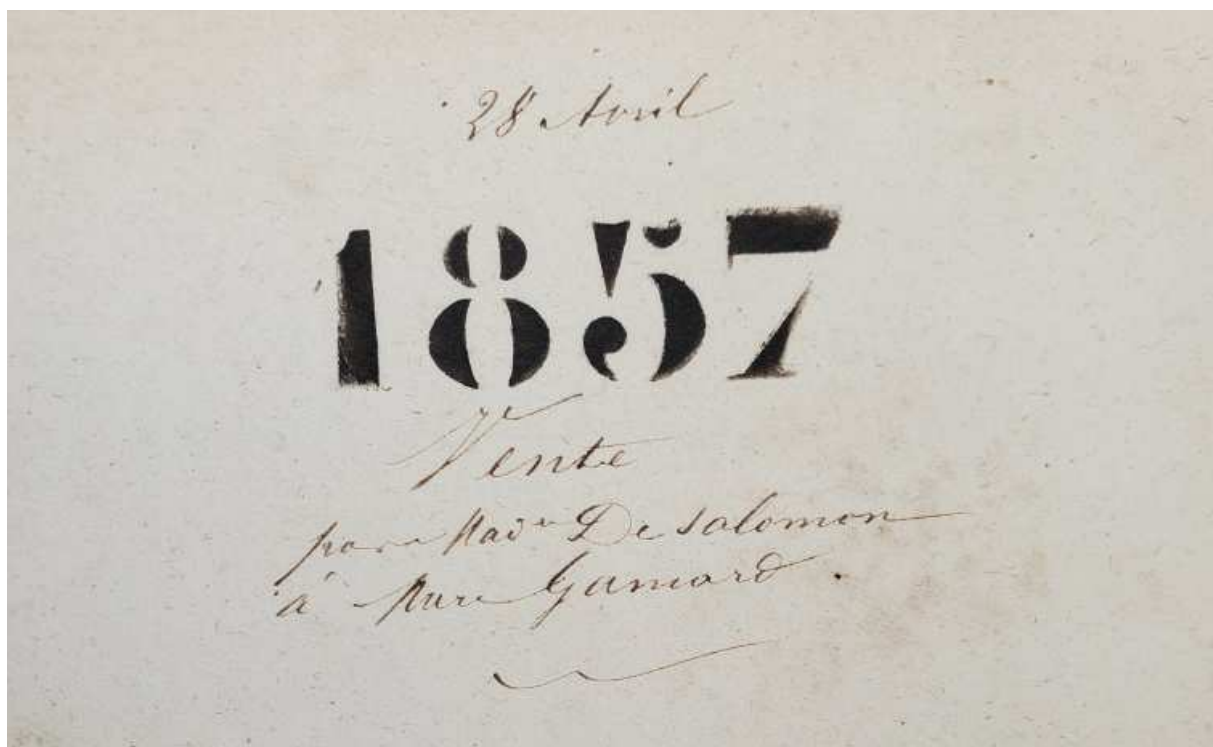 28 Avril
1857
Vente
par Mad^e De Salomon
à Gamard.